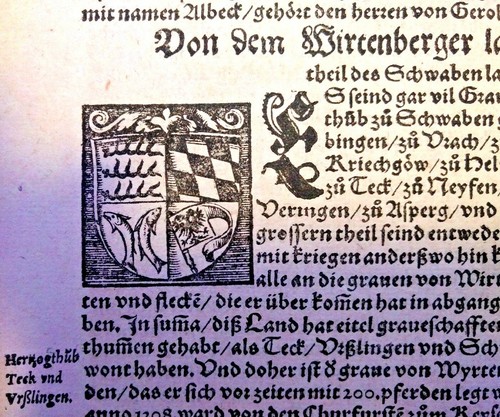 mit namen Albeck/gehört den herren von Gerol
Von dem Wirtenberger la
theil des Schwaben la
ES seind gar vil Grau
thůb zů Schwaben
bingen/zů Vrach/z
Kriechgöw/zů Hel
zů Teck/zů Neyfen
Veringen/zů Asperg/vnd
grossern theil seind entwede
mit kriegen anderßwo hin k
alle an die grauen von Wirt
ten vnd fleckē/die er über kom̄en hat in abgang
ben. In sum̄a/diß Land hat eitel graueschafften
thum̄en gehabt/als Teck/Vrßlingen vnd Sch
wont haben. Vnd doher ist d̕ graue von Wyrten
den/das er sich vor zeiten mit 200.pferden legt v
anno 1308 ward von den Churfürstē zum
Hertzogthüb
Teck vnd
Vrßlingen.